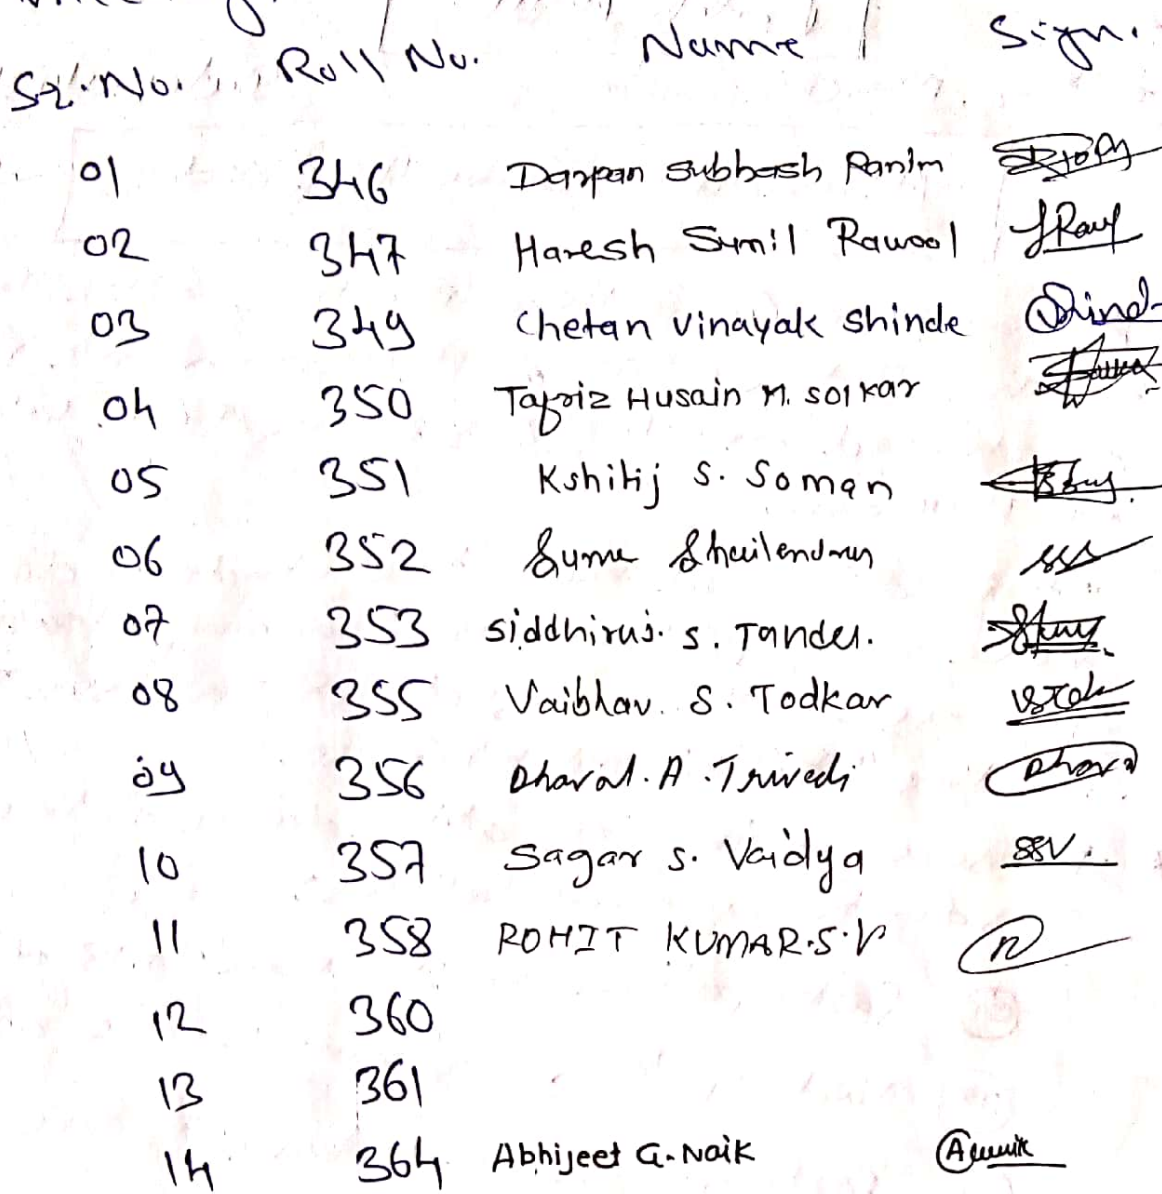 Sr. No. Roll No. Name Sign.
01 346 Darpan Subhash
02 347 Haresh Sunil Rawool
03 349 Chetan Vinayak Shinde
04 350 Husain M. Solkar
05 351 Kshitij S. Soman
06 352
07 353 Siddhiraj. S. Tandel.
08 355 Vaibhav. S. Todkar
09 356 Dhaval. A. Trivedi
10 357 Sagar S. Vaidya SSV.
11 358 ROHIT KUMAR.S.V
12 360
13 361
14 364 Abhijeet G. Naik